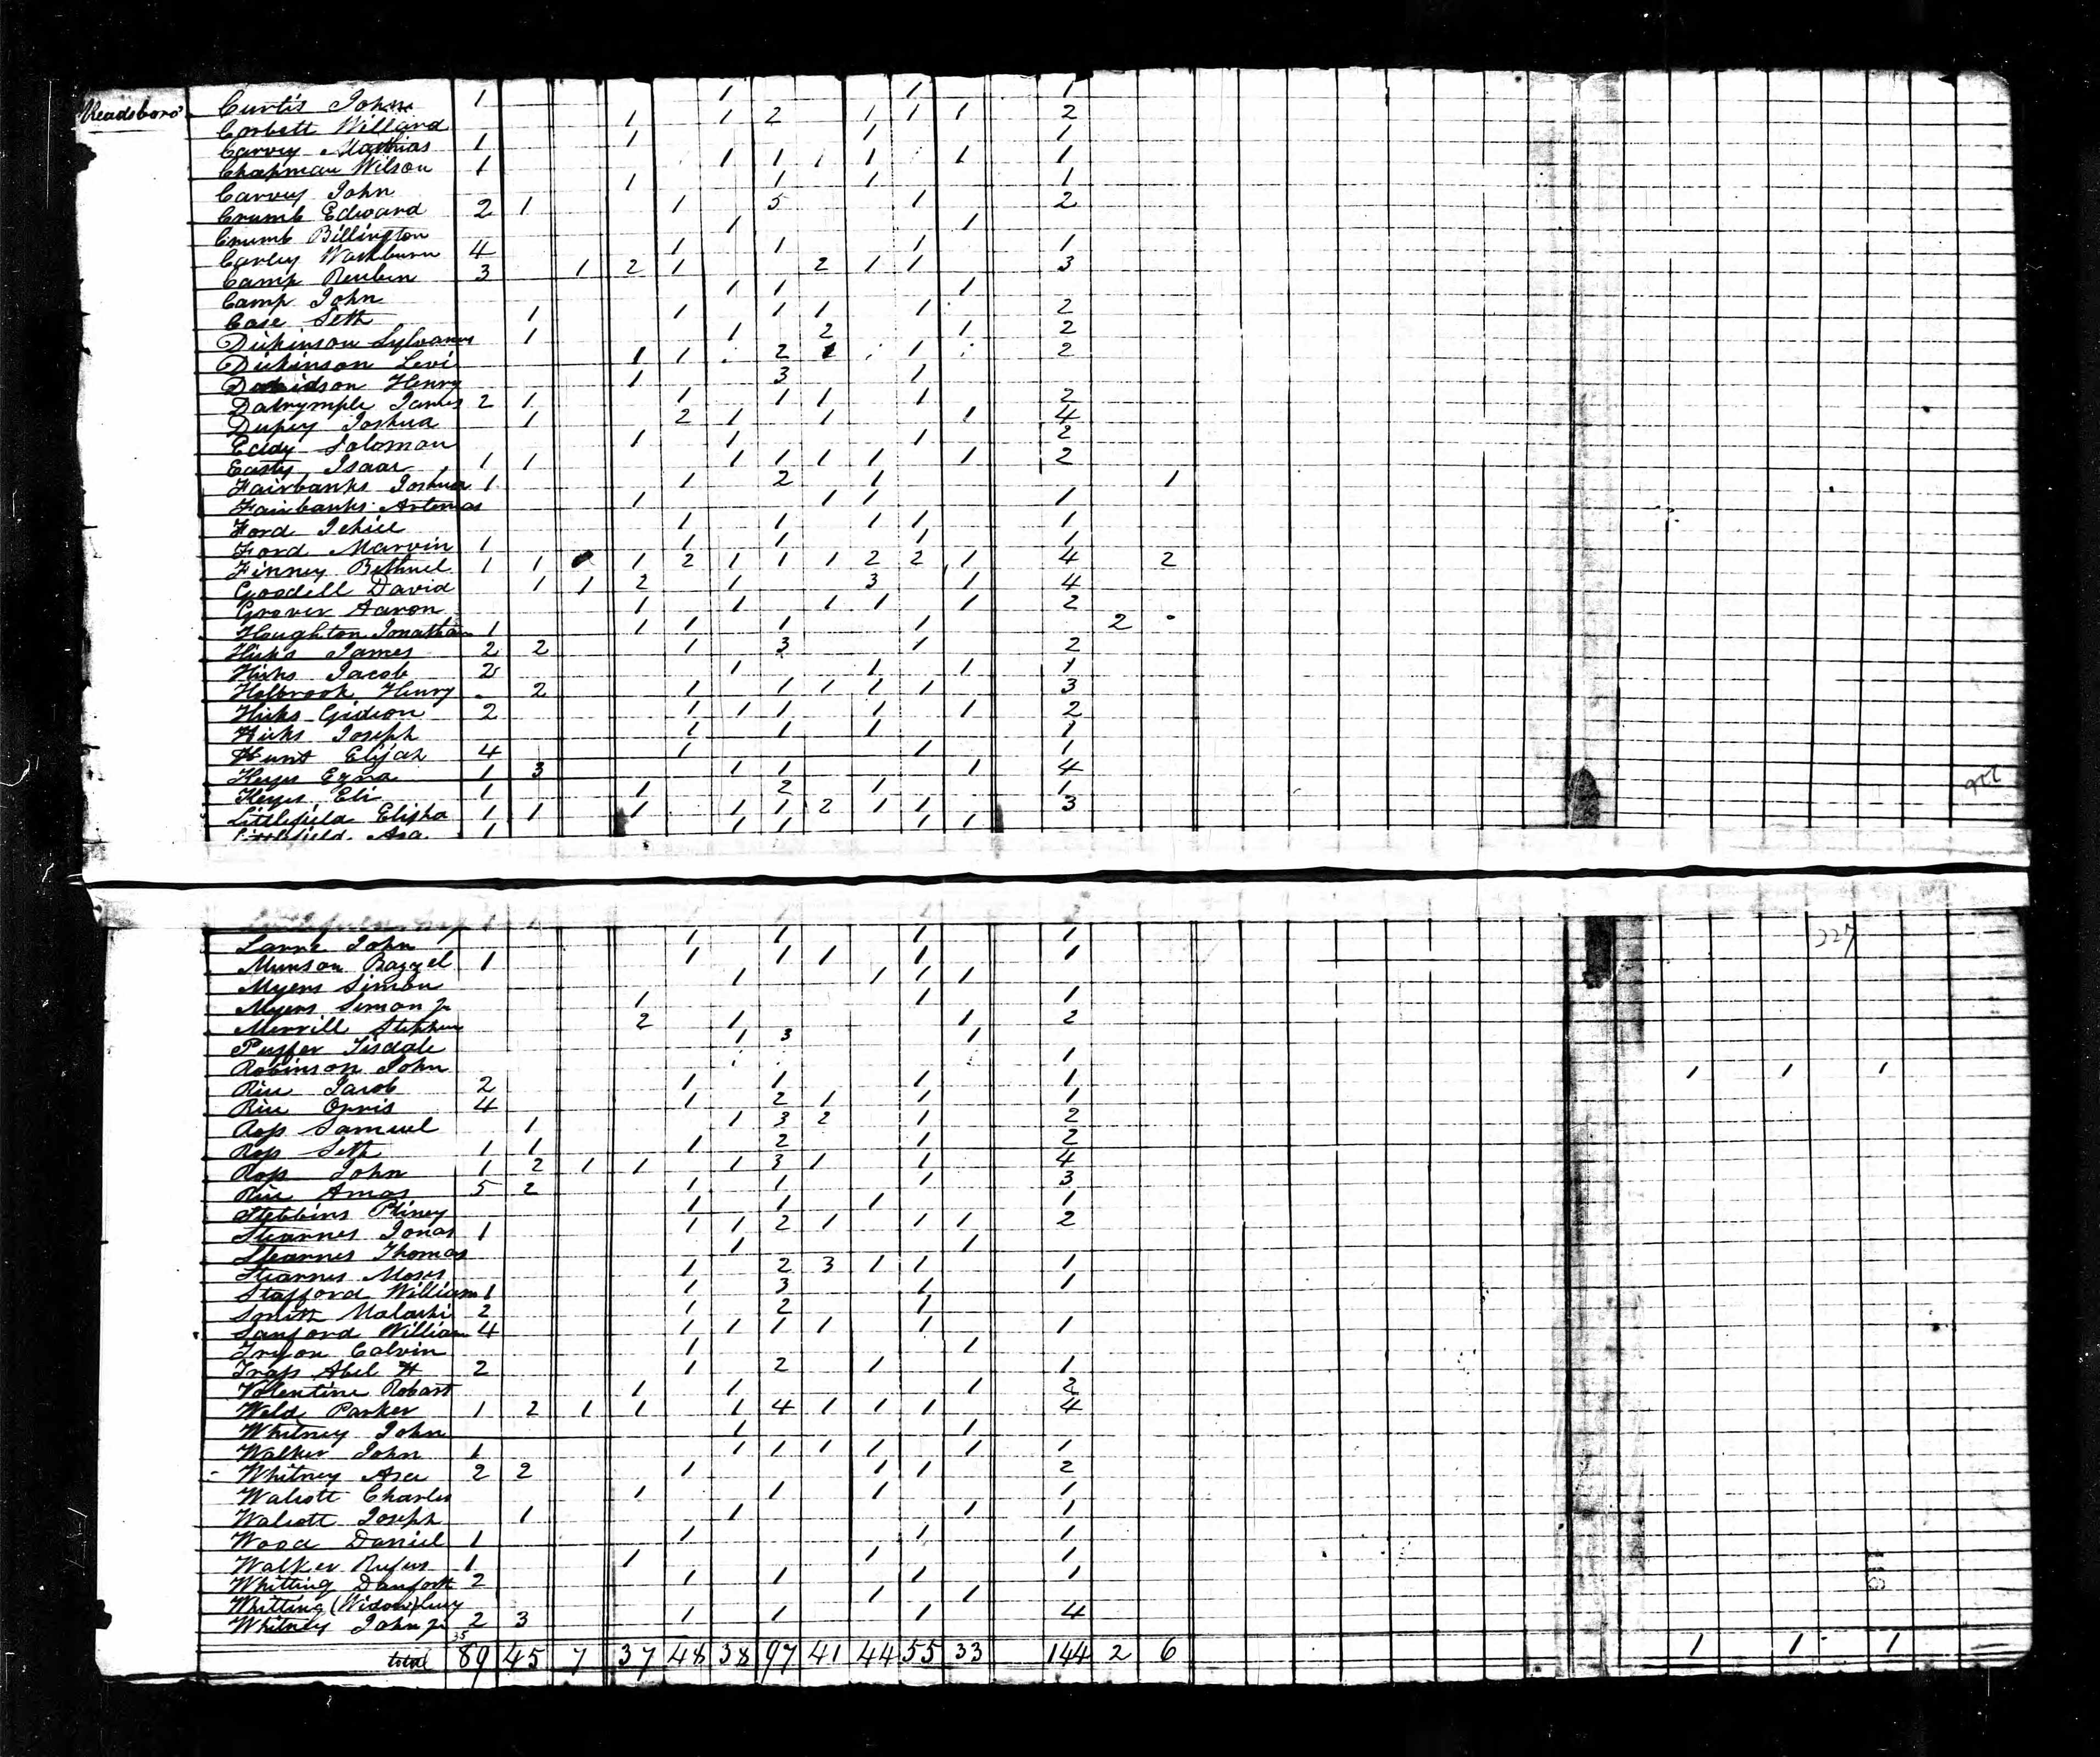 Readsboro Curtis John 1 1 1 1
Corbett Willard 1 1 2 1 1 1 2
Carvey Mathias 1 1 1 1
Chapman Wilson 1 1 1 1 1 1 1
Carvey John 1 1 1 1
Crumb Edward 2 1 1 5 1 2
Crumb Billington 1 1
Carley Washburn 4 1 1 1 1
Camp Reuben 3 1 2 1 2 1 1 3
Camp John 1 1 1
Case Seth 1 1 1 1 1 2
Dickinson Sylvanus 1 1 2 1 2
Dickinson Levi 1 1 2 1 1 2
Davidson Henry 1 3 1
Dalrymple James 2 1 1 1 1 1 2
Dupey Joshua 1 2 1 1 1 4
Eddy Solomon 1 1 1 2
Easty Isaac 1 1 1 1 1 1 1 2
Fairbanks Joshua 1 1 2 1 1
Fairbanks Artemas 1 1 1 1
Ford Jehiel 1 1 1 1 1
Ford Marvin 1 1 1 1 1
Finney Bethuel 1 1 1 2 1 1 1 2 2 1 4 2
Goodell David 1 1 2 1 3 1 4
Grover Aaron 1 1 1 1 1 2
Houghton Jonathan 1 1 1 1 1 2
Hicks James 2 2 1 3 1 2
Hicks Jacob 2 1 1 1 1
Holbrook Henry 2 1 1 1 1 1 3
Hicks Gideon 2 1 1 1 1 1 2
Hicks Joseph 1 1 1 1
Hunt Elijah 4 1 1 1
Keyes Ezra 1 3 1 1 1 4
Keyes Eli 1 1 2 1 1
Littlefield Elisha 1 1 1 1 1 2 1 1 3
Littlefield Asa 1 1 1 1 1
227
Larne John 1 1 1 1
Munson Bazzel 1 1 1 1 1 1
Myers Simon 1 1 1 1
Myers Simon Jr 1 1 1
Merrill Stephen 2 1 1 2
Puffer Tisdale 1 3 1
Robinson John 1 1 1 1
Rice Jacob 2 1 1 1 1
Rice Orris 4 1 2 1 1 1
Ross Samuel 1 1 3 2 1 2
Ross Seth 1 1 1 2 1 2
Ross John 1 2 1 1 1 3 1 1 4
Rice Amos 5 2 1 1 1 3
Stebbins Pliney 1 1 1 1
Stearnes Jonas 1 1 1 2 1 1 1 2
Stearnes Thomas 1 1
Stearnes Moses 1 2 3 1 1 1
Stafford William 1 1 3 1 1
Smith Malachi 2 1 2 1
Sanford William 4 1 1 1 1 1 1
Tryon Calvin 1 1
Trass Abel H 2 1 2 1 1
Valentine Robart 1 1 1 2
Weld Parker 1 2 1 1 1 4 1 1 1 4
Whitney John 1 1
Walker John 1 1 1 1 1 1 1
Whitney Asa 2 2 1 1 1 2
Walcott Charles 1 1 1 1
Walcott Joseph 1 1 1 1
Wood Daniel 1 1 1 1
Walker Rufus 1 1 1 1
Whitting Danforth 2 1 1 1 1
Whitting (Widow) Lucy 1 1
Whitney John Jr 2 3 1 1 1 4
total 89 45 7 37 48 38 97 41 44 55 33 144 2 6 1 1 1